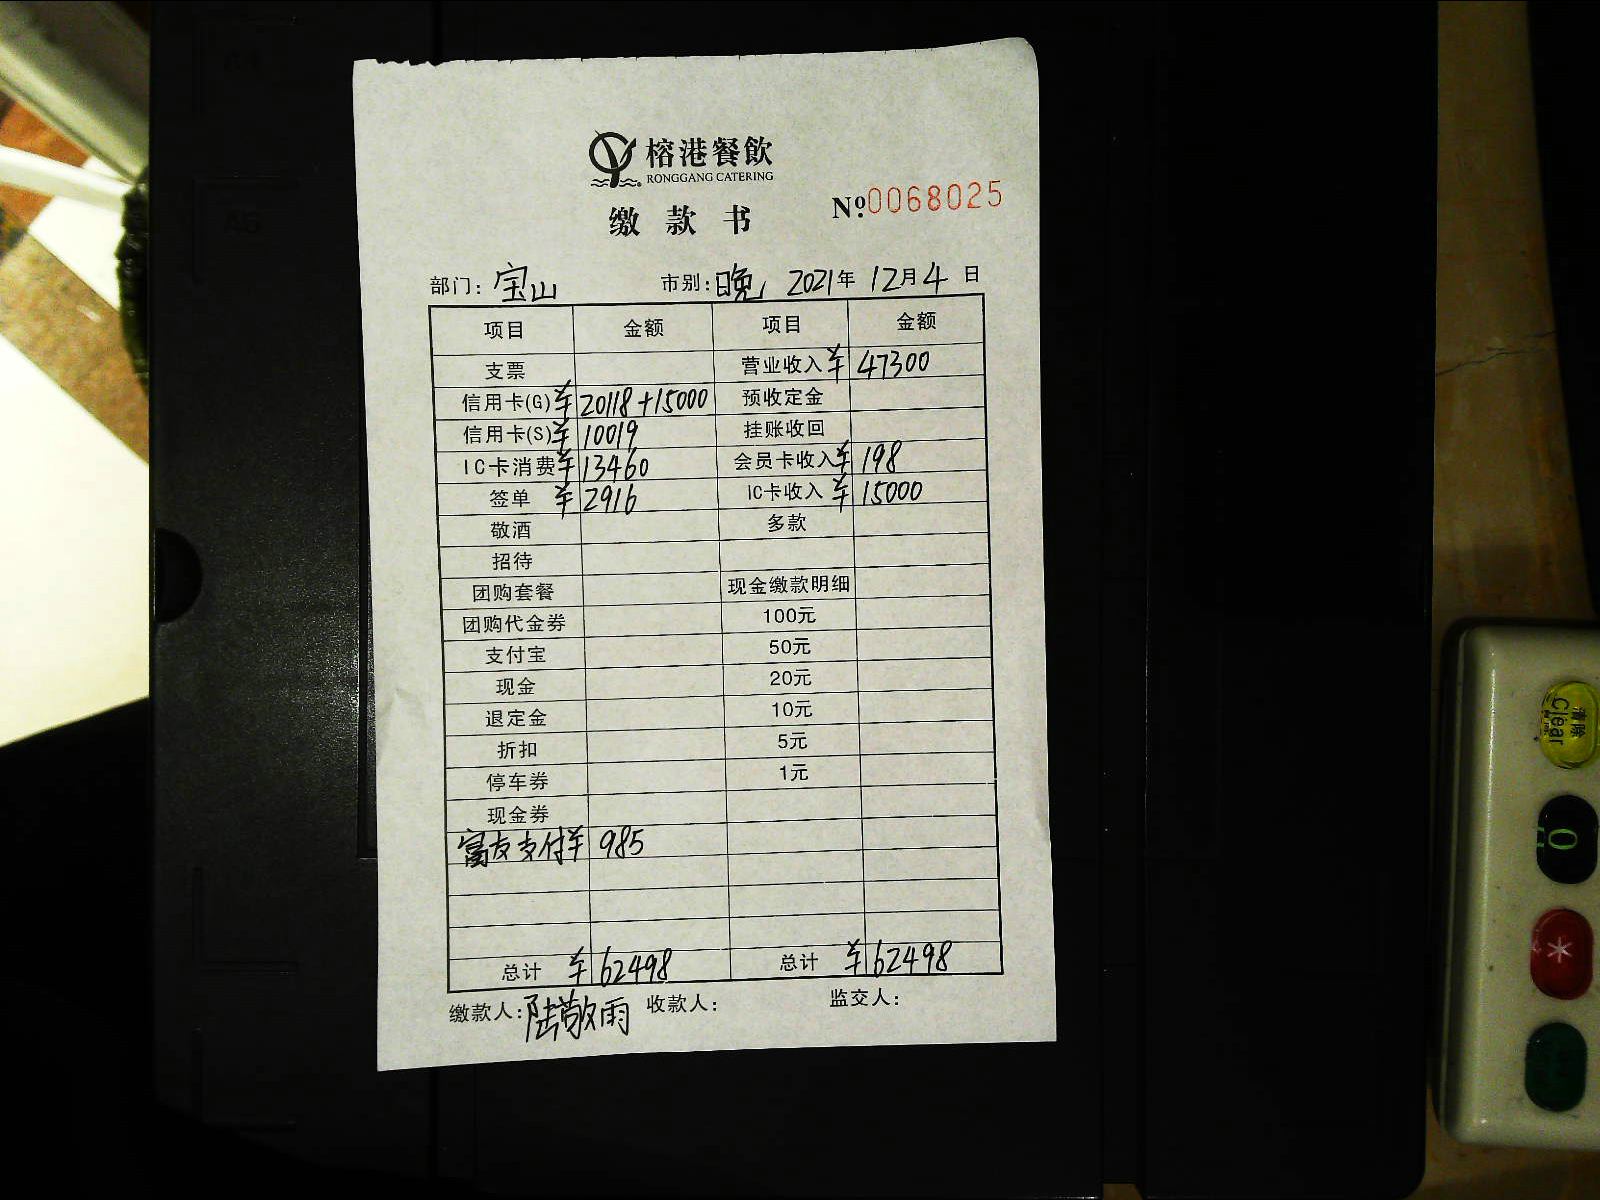 榕港餐飲
RONGGANG CATERING
缴款书 Nº.0068025
部门：宝山 市别：晚 2021年12月4日
项目 金额 项目 金额
支票 营业收入 ¥47300
信用卡(G) ¥20118+15000 预收定金
信用卡(S) ¥10019 挂账收回
IC卡消费 ¥13460 会员卡收入 ¥198
签单 ¥2916 IC卡收入 ¥15000
敬酒 多款
招待
团购套餐 现金缴款明细
团购代金券 100元
支付宝 50元
现金 20元
退定金 10元
折扣 5元
停车券 1元
现金券
富友支付 ¥985
总计 ¥62498 总计 ¥62498
缴款人：陆敬雨 收款人： 监交人：
清除
Clear
0
*
A5